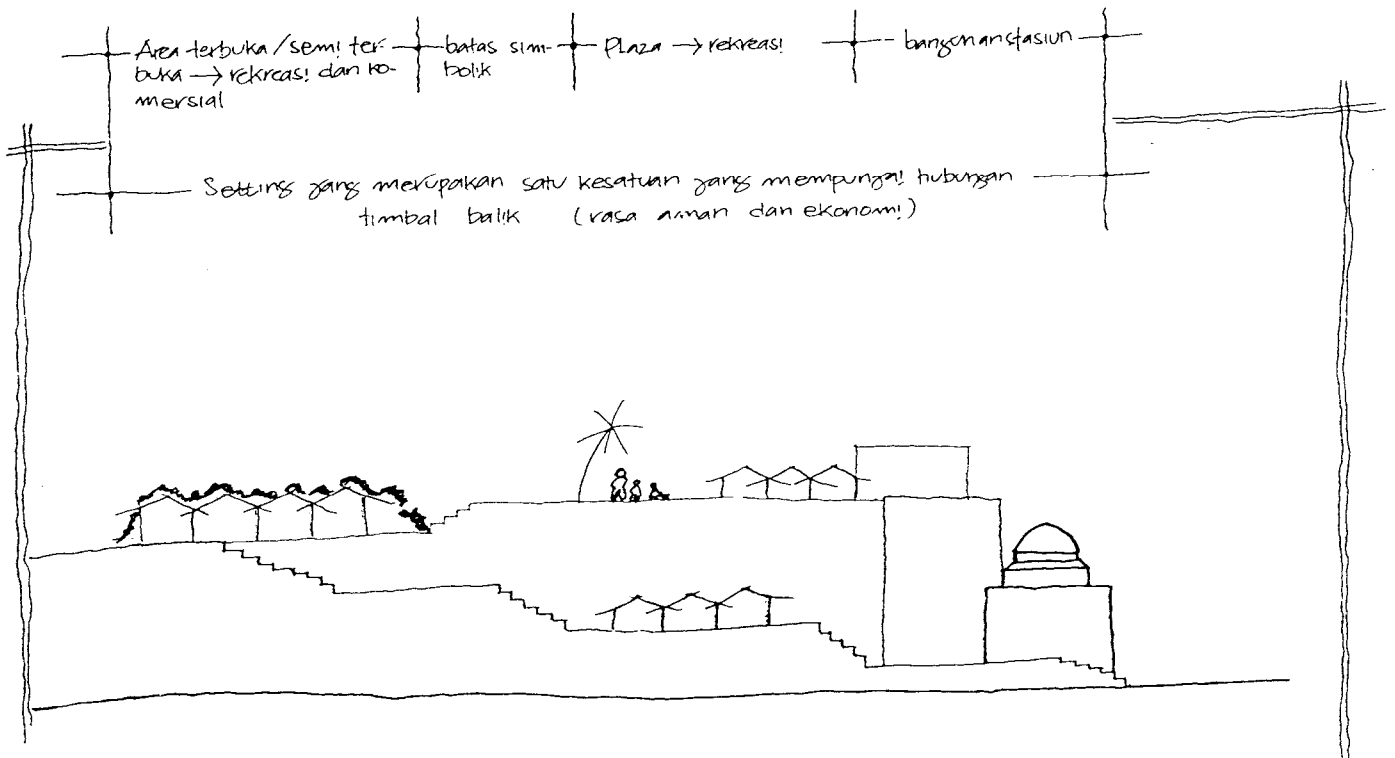 Area terbuka / semi ter-
buka → rekreasi dan ko-
mersial
batas sim-
bolik
Plaza → rekreasi
bangunan stasiun
Setting yang merupakan satu kesatuan yang mempunyai hubungan
timbal balik (rasa aman dan ekonomi)